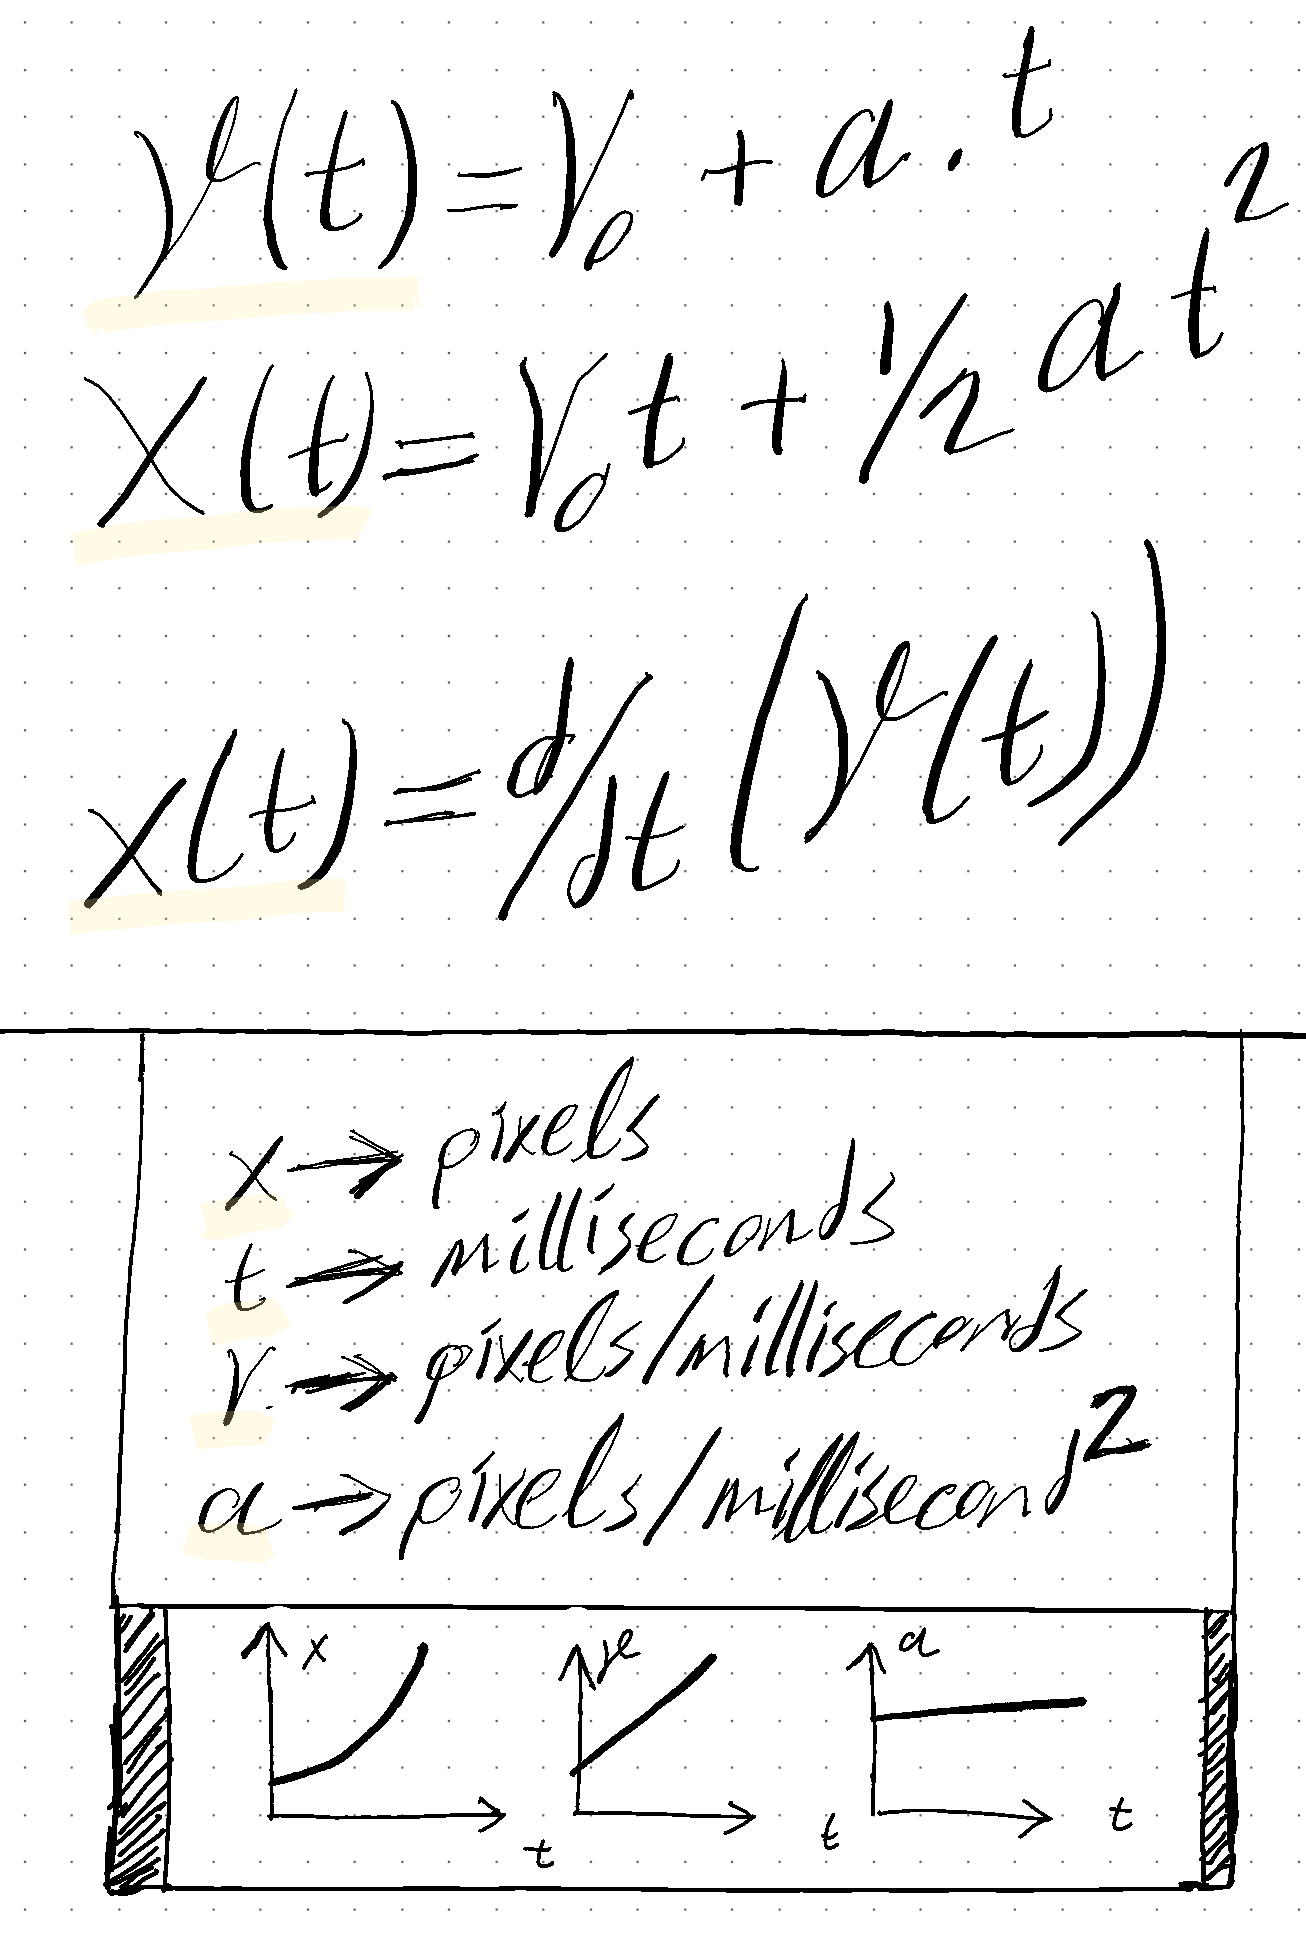 v(t) = V₀ + a . t
X(t) = V₀ t + 1/2 a t²
x(t) = d/dt (v(t))
x → pixels
t → milliseconds
V → pixels/milliseconds
a → pixels/millisecond²
x v a
t t t